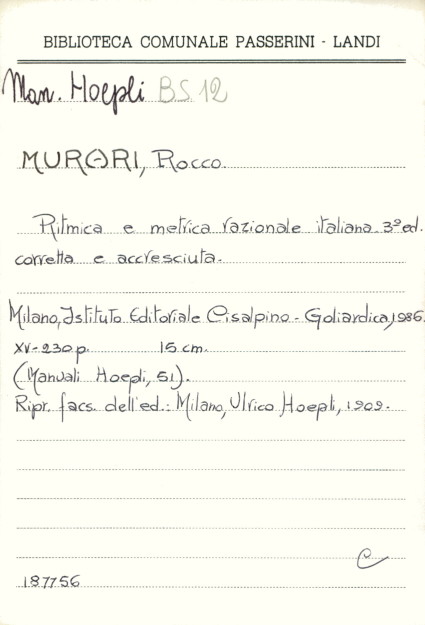 BIBLIOTECA COMUNALE PASSERINI - LANDI
Man. Hoepli BS 12
MURARI, Rocco.
Ritmica e metrica razionale italiana. 3ª ed.
corretta e accresciuta.
Milano, Istituto Editoriale Cisalpino - Goliardica, 1986.
XV-230 p. 15 cm.
(Manuali Hoepli, 51).
Ripr. facs. dell'ed.: Milano, Ulrico Hoepli, 1909.
C
187756